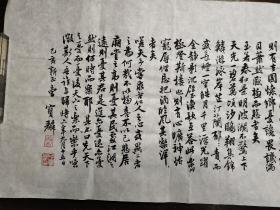 則有去國懷鄉憂讒畏譏滿
目蕭然感極而悲者矣
至若春和景明波瀾不驚上下
天光一碧萬頃沙鷗翔集錦
鱗游泳岸芷汀蘭郁郁青青而
或長煙一空皓月千里浮光躍
金靜影沉璧漁歌互答此樂何
極登斯樓也則有心曠神怡
寵辱偕忘把酒臨風其喜洋洋
者矣
嗟夫予嘗求古仁人之心或異二者
之為何哉不以物喜不以己悲居
廟堂之高則憂其民處江湖之
遠則憂其君是進亦憂退亦憂
然則何時而樂耶其必曰先天下
之憂而憂後天下之樂而樂乎噫
微斯人吾誰與歸時六年九月十五日
乙亥 寶麟